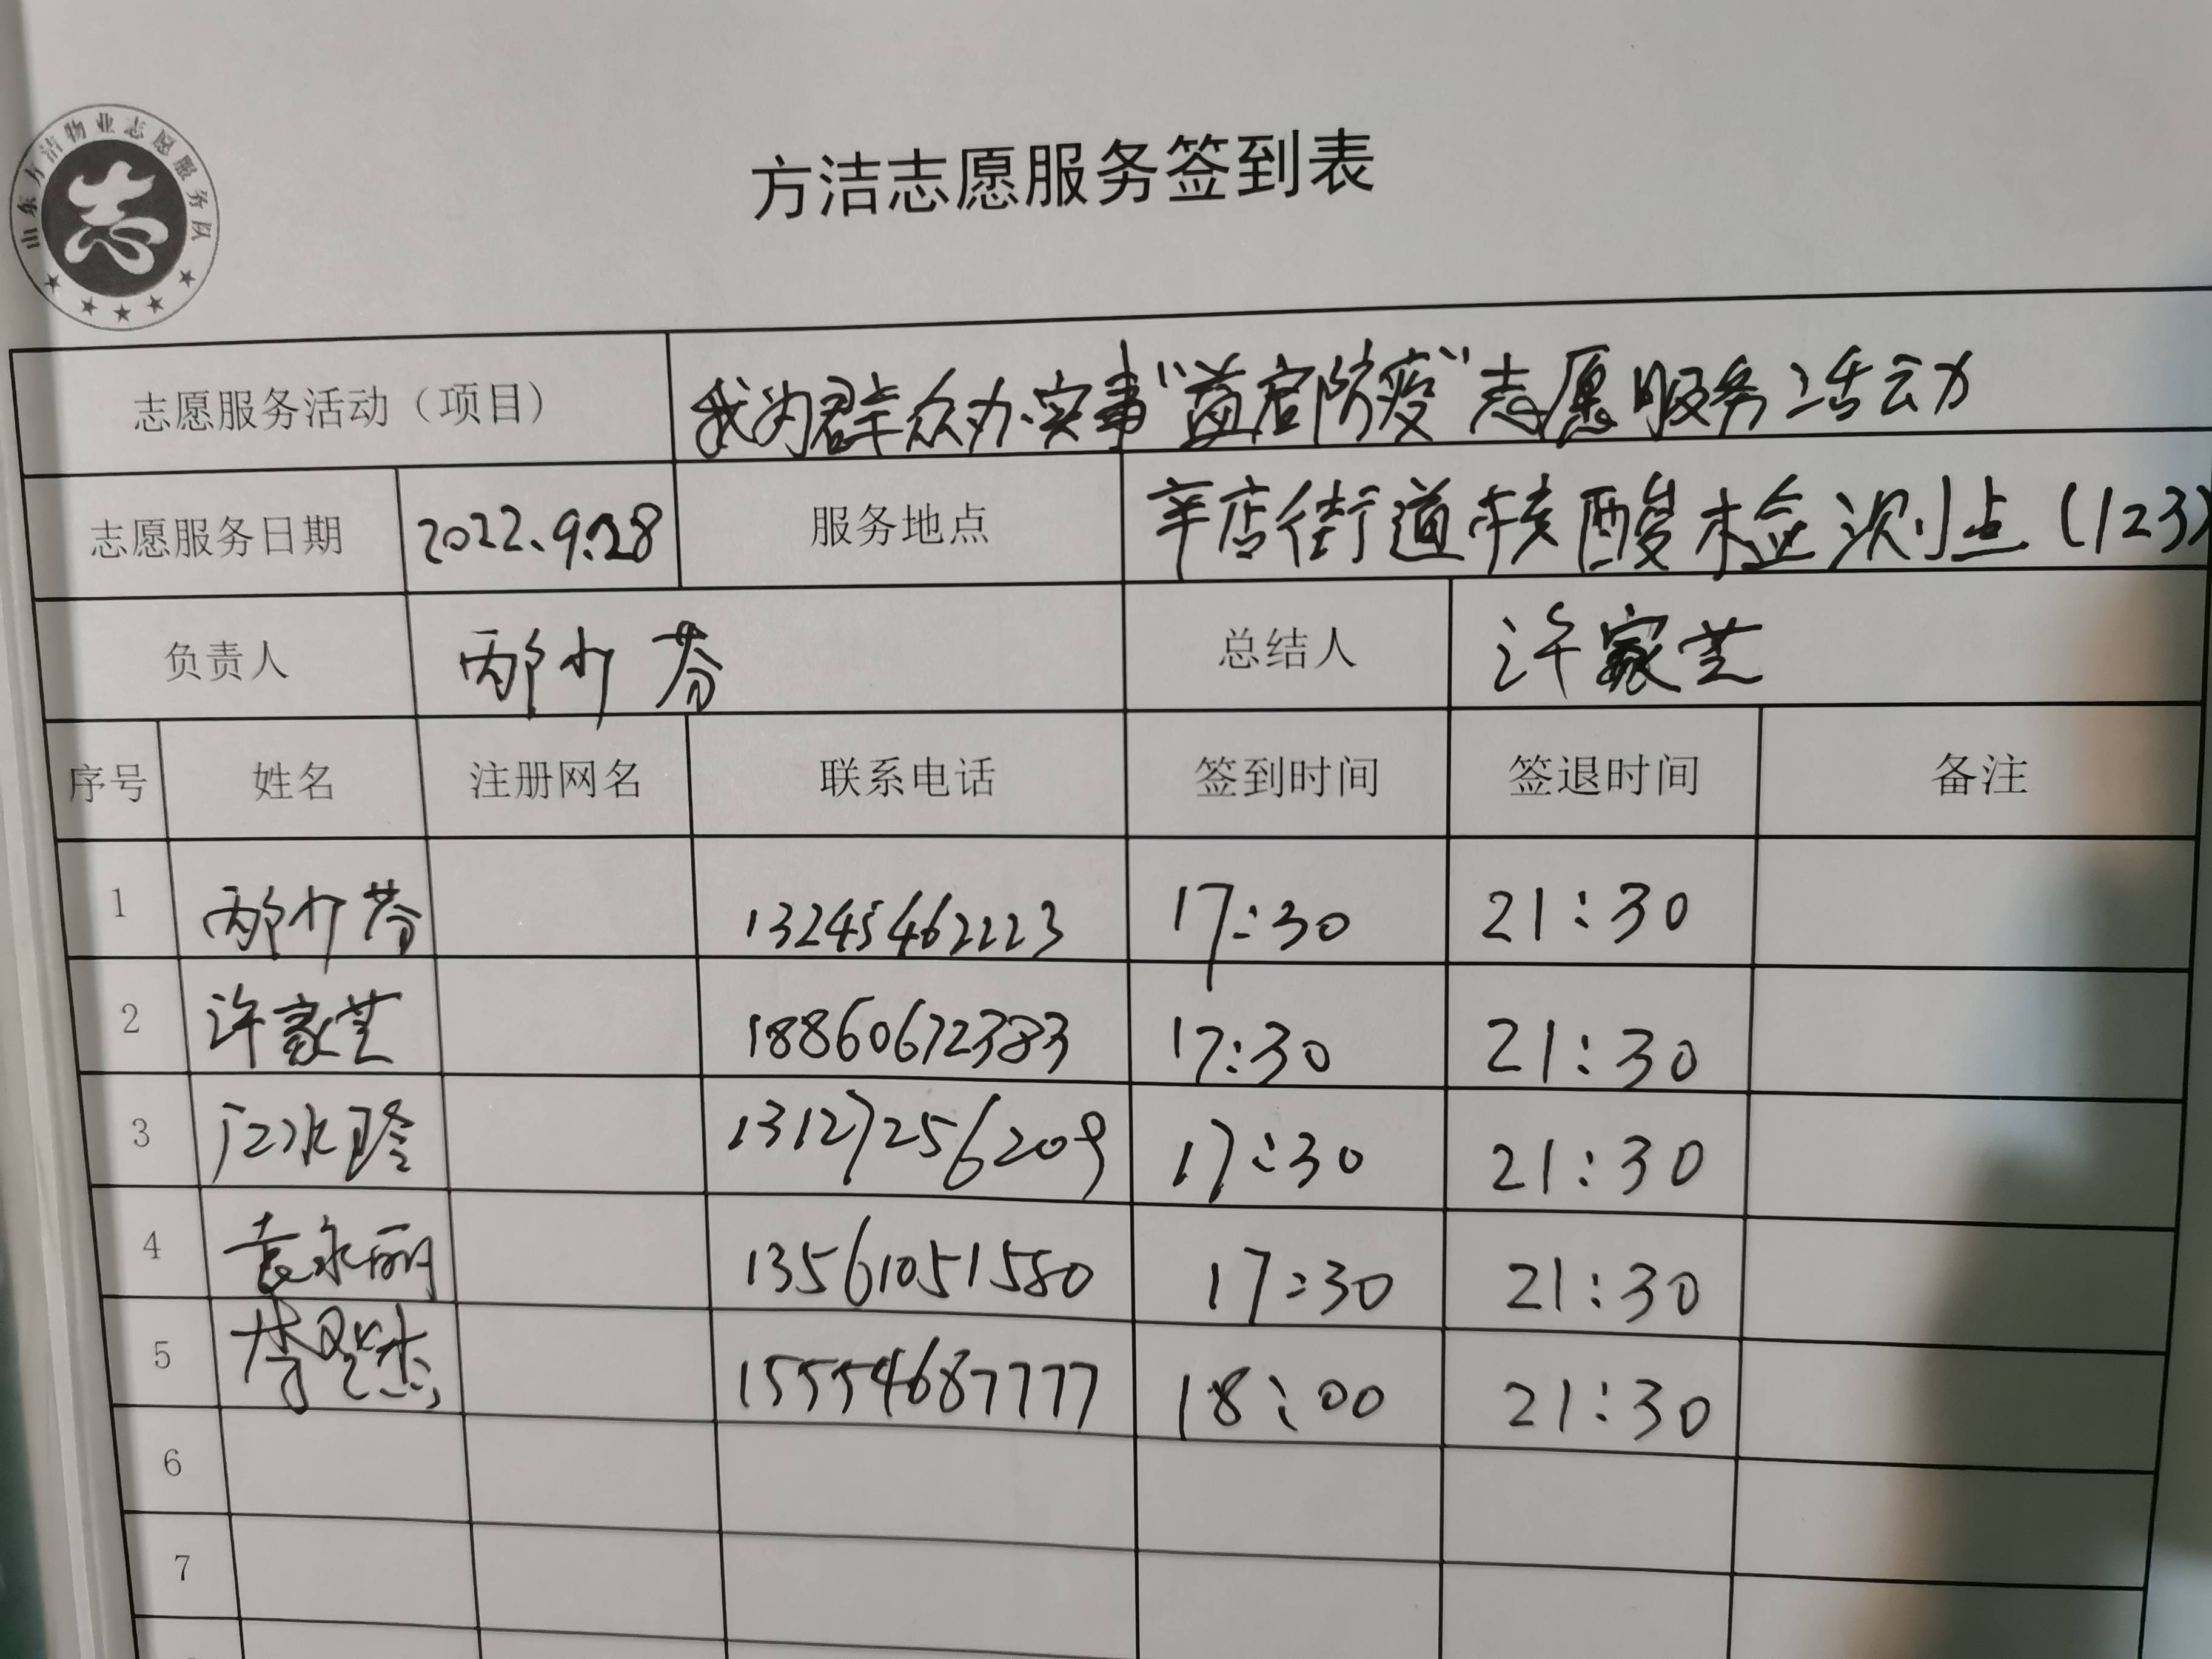 山东方洁物业志愿服务队
志
方洁志愿服务签到表
志愿服务活动（项目） 我为群众办实事“益启防疫”志愿服务活动
志愿服务日期 2022.9.28 服务地点 辛店街道核酸检测点(123)
负责人 邴少芬 总结人 许家芝
序号 姓名 注册网名 联系电话 签到时间 签退时间 备注
1 邴少芬 13245462223 17:30 21:30
2 许家芝 18860672383 17:30 21:30
3 13127256209 17:30 21:30
4 袁永丽 13561051580 17:30 21:30
5 15554687777 18:00 21:30
6
7